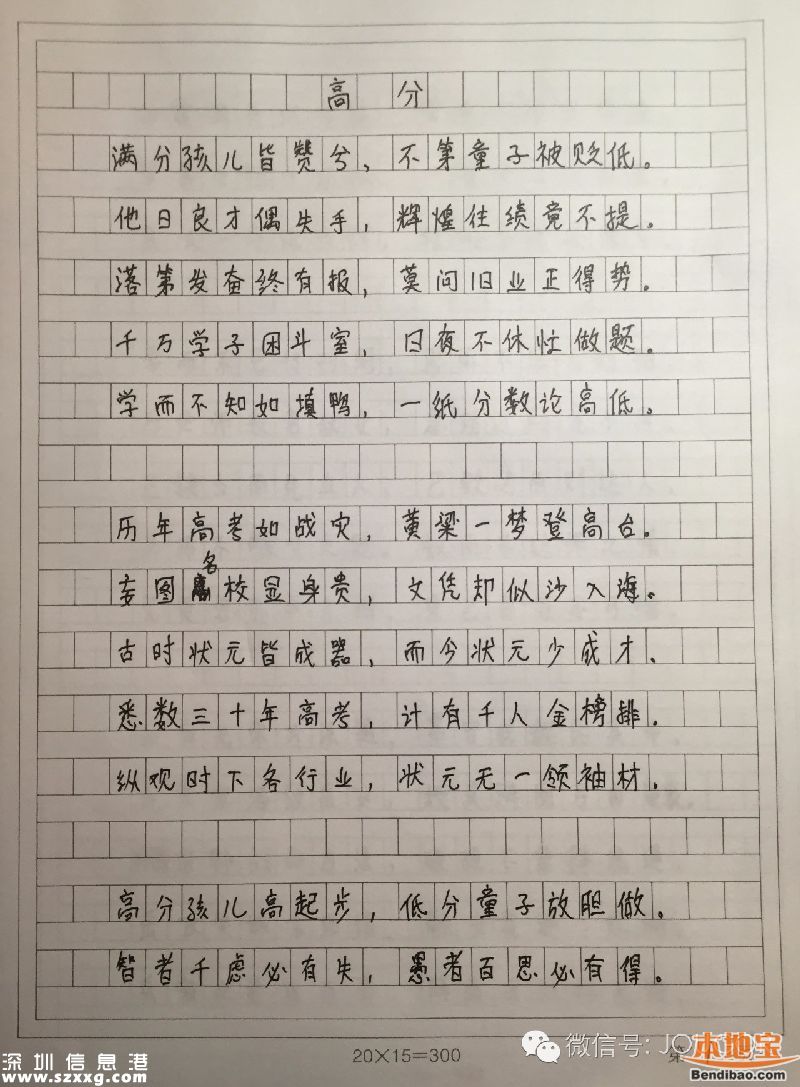 高分
满分孩儿皆赞兮，不第童子被贬低。
他日良才偶失手，辉煌往绩竟不提。
落第发奋终有报，莫问旧业正得势。
千万学子困斗室，日夜不休忙做题。
学而不知如填鸭，一纸分数论高低。
历年高考如战灾，黄梁一梦登高台。
妄图名校显身贵，文凭却似沙入海。
古时状元皆成器，而今状元少成才。
悉数三十年高考，计有千人金榜排。
纵观时下各行业，状元无一领袖材。
高分孩儿高起步，低分童子放胆做。
智者千虑必有失，愚者百思必有得。
20×15=300
微信号: JO
第
本地宝
Bendibao.com
深圳信息港
www.szxxg.com